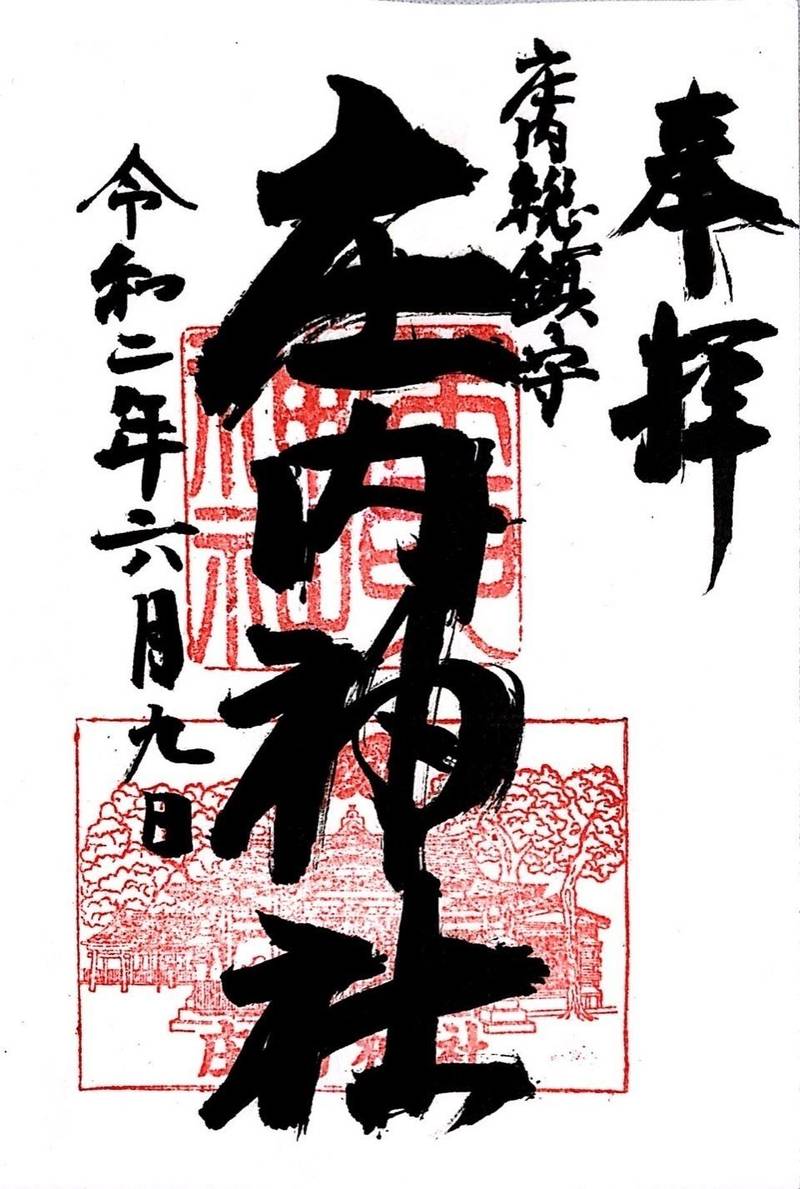 奉拝
庄内総鎮守
庄内神社
令和二年六月九日
庄内神社